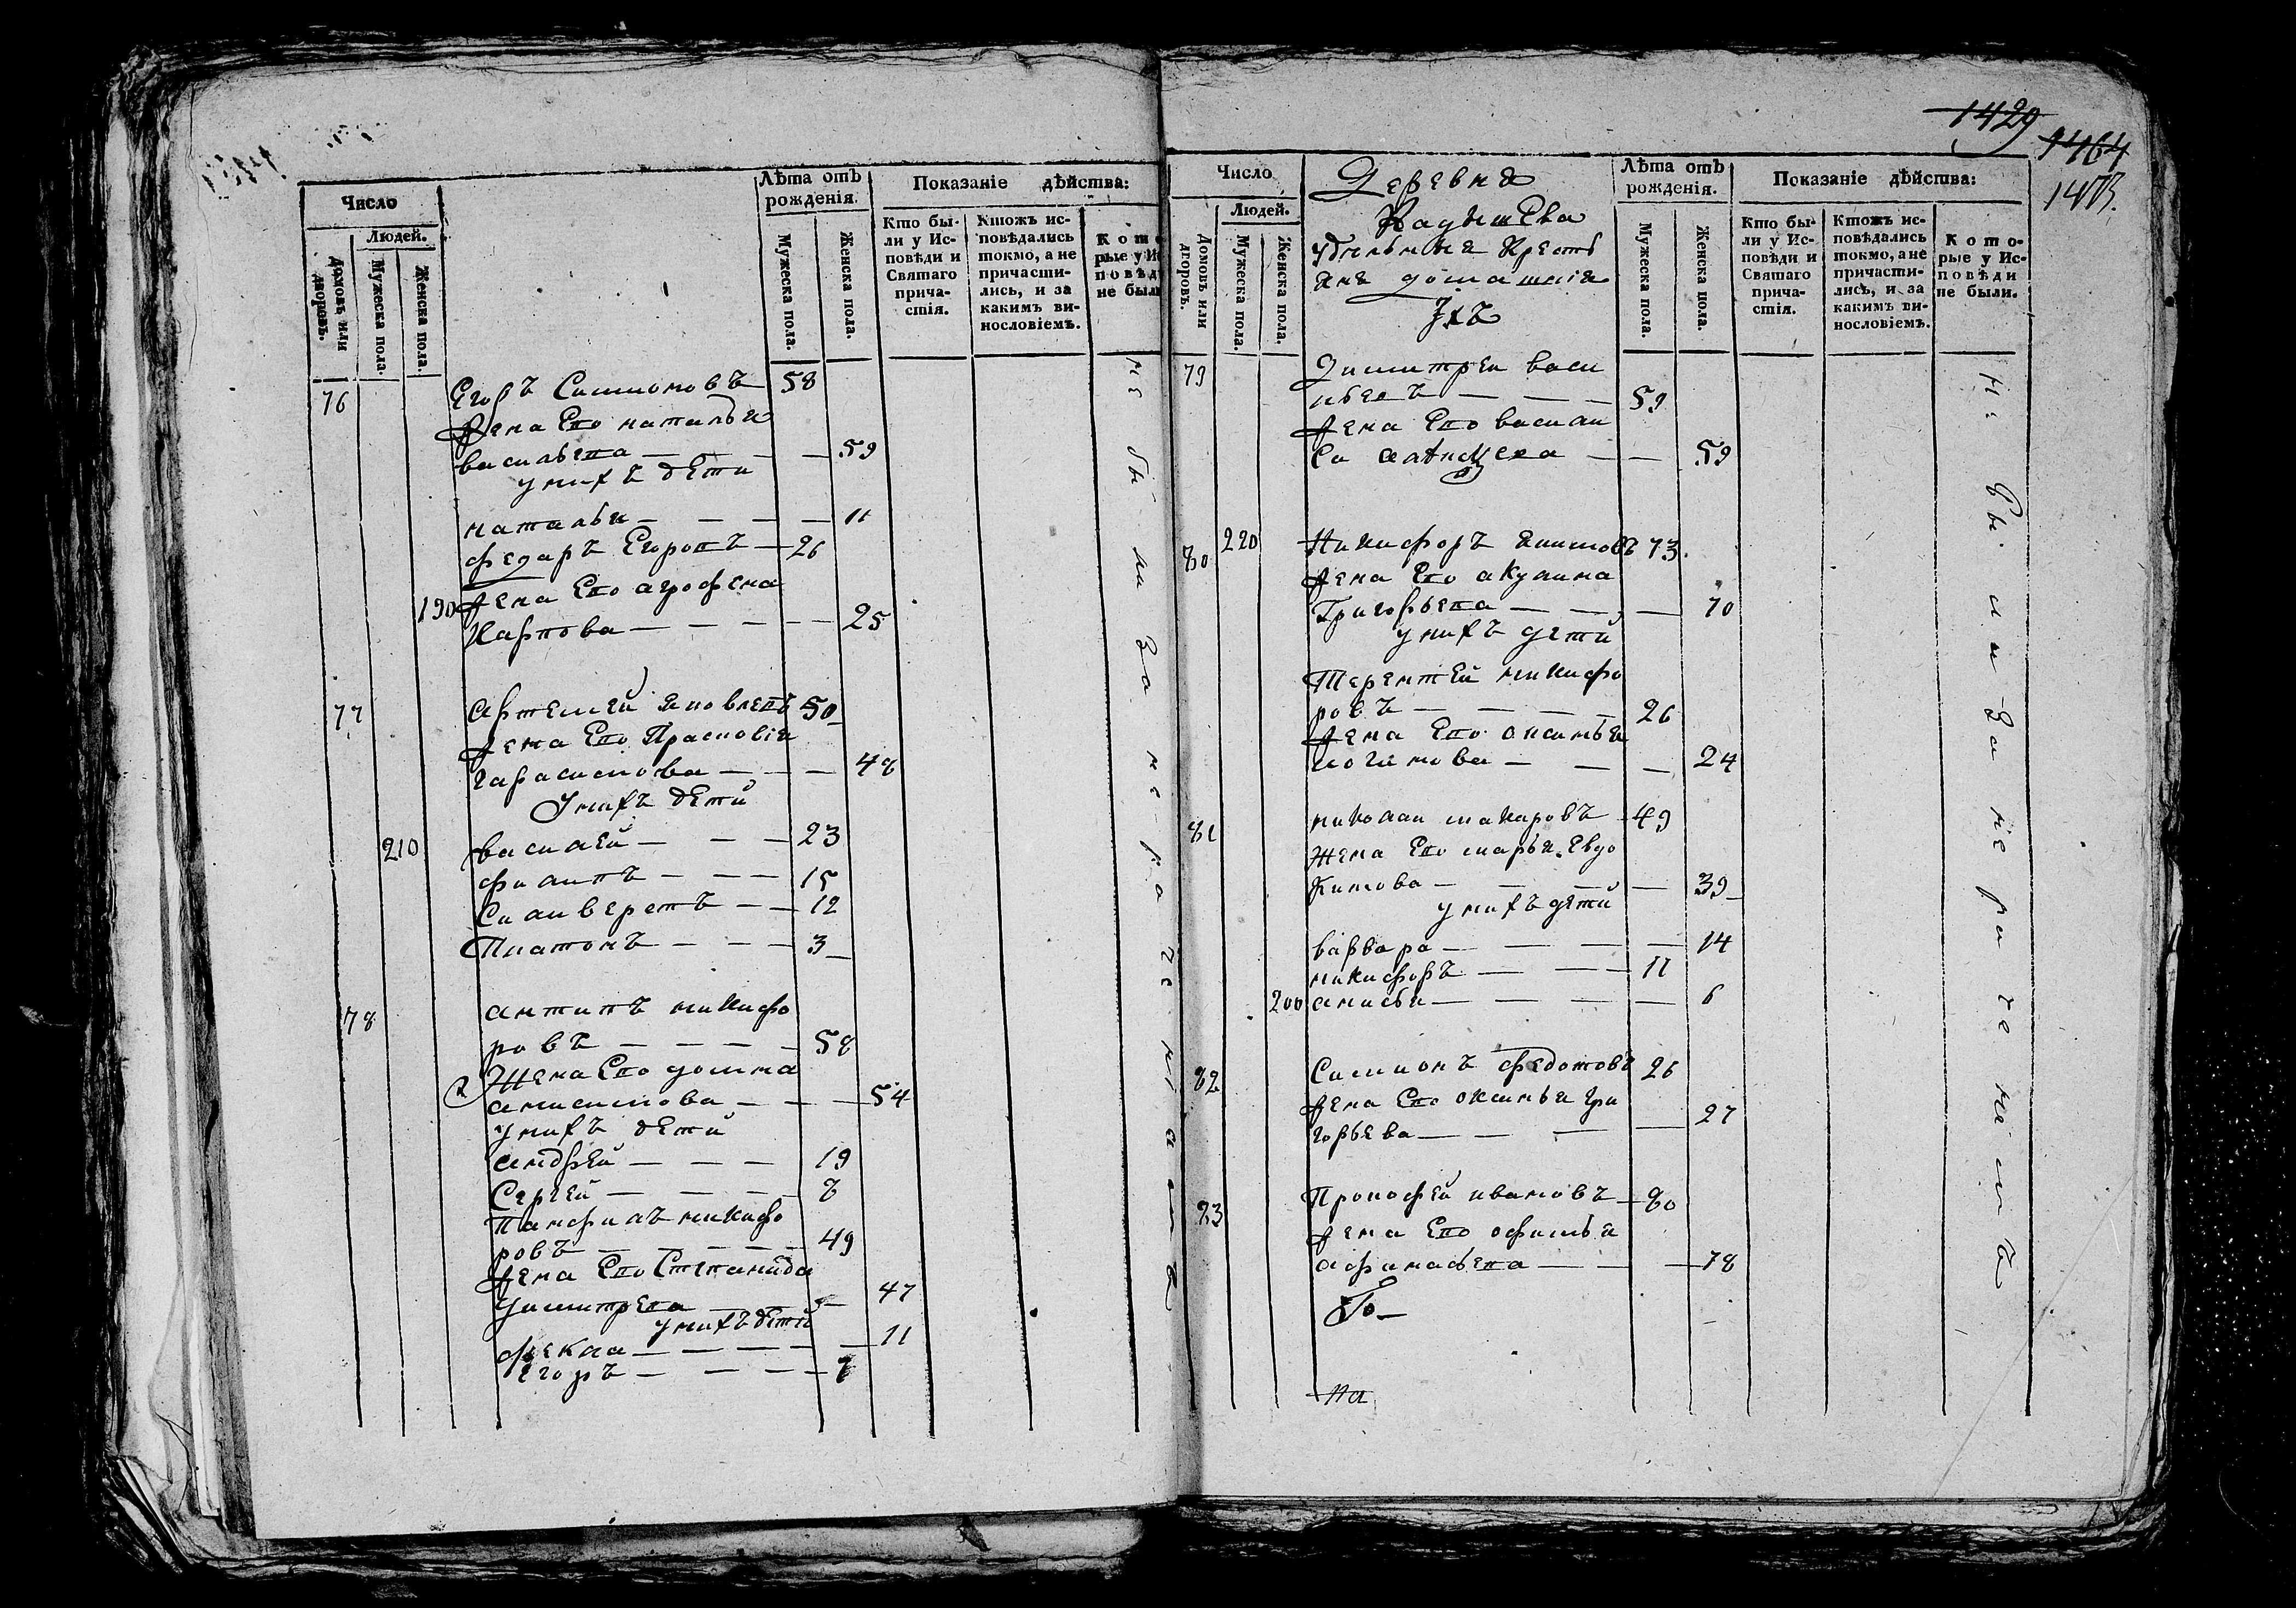 Число
Людей.
Домовъ или дворовъ.
Мужеска пола.
Женска пола.
Лѣта отъ рожденія.
Мужеска пола.
Женска пола.
Показаніе дѣйства:
Кто были у Исповѣди и Святаго причастія.
Ктожъ исповѣдались токмо, а не причастились, и за какимъ винословіемъ.
Кото
рые у Ис
повѣд
не были
76 Егоръ Симионовъ 58
жена Его наталья
васильева — — — 59
у нихъ дети
наталья — — — — 11
федаръ Егоровъ — 26
190 жена Его агрофена
Карпова — — — — — 25
77 Артемей яковлевъ 50
жена Его Прасковiя
гарасимова — — — 48
У нихъ дети
210 василей — — — 23
филипъ — — — 15
Силиверстъ — — 12
Платонъ — — — 3
78 антипъ никифо
ровъ — — — — 58
Жена Его домна
анисимова — — — 54
у нихъ дети
андрей — — — 19
Сергей — — — 8
Панфилъ никифо
ровъ — — — — 49
жена Его Степанида
димитрева — — 47
у нихъ дети
фекла — — — — — 11
Егоръ — — — — 7
не бы ли за не ра че ні е мъ
1429
1464
1473.
Число
Людей.
Домовъ или дворовъ.
Мужеска пола.
Женска пола.
Деревня
Кадышева
удельныя Кресть
яне домашнiя
Ихъ
Лѣта отъ рожденія.
Мужеска пола.
Женска пола.
Показаніе дѣйства:
Кто были у Исповѣди и Святаго причастія.
Ктожъ исповѣдались токмо, а не причастились, и за какимъ винословіемъ.
Которые у Исповѣди не были.
79 Димитрей васи
льевъ — — — 59
жена Его васили
са — — 59
80 220 Никифоръ 73.
жена Его акулина
Григорьева — — — 70
у нихъ дети
Терентей никифо
ровъ — — — — 26
жена Его оксинья
логинова — — — 24
81 николай макаровъ 49
жена Его марья Евдо
кимова — — — — 39
у нихъ дети
варвара — — — — 14
никифоръ — — — 11
200 анисья — — — — 6
82 Симионъ федотовъ 26
жена Его оксинья гри
горьева — — — — 27
83 Прокофей ивановъ — 80
жена Его офимья
афанасьева — — — 78
Го —
на
не бы ли за не ра че ні е мъ